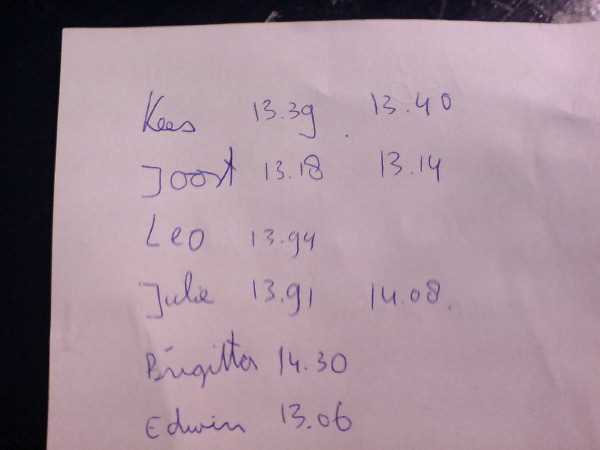 Kees 13.39 13.40
Joost 13.18 13.14
Leo 13.94
Julie 13.91 14.08.
Brigitta 14.30
Edwin 13.06